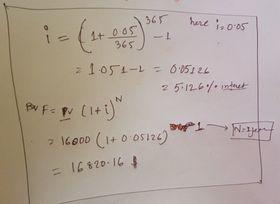 i = (1 + 0.05/365)^365 - 1 here i = 0.05
= 1.051 - 1 = 0.05126
= 5.126% interest
F = PV (1+i)^N
= 16000 (1 + 0.05126) 1 → N=1year
= 16820.16